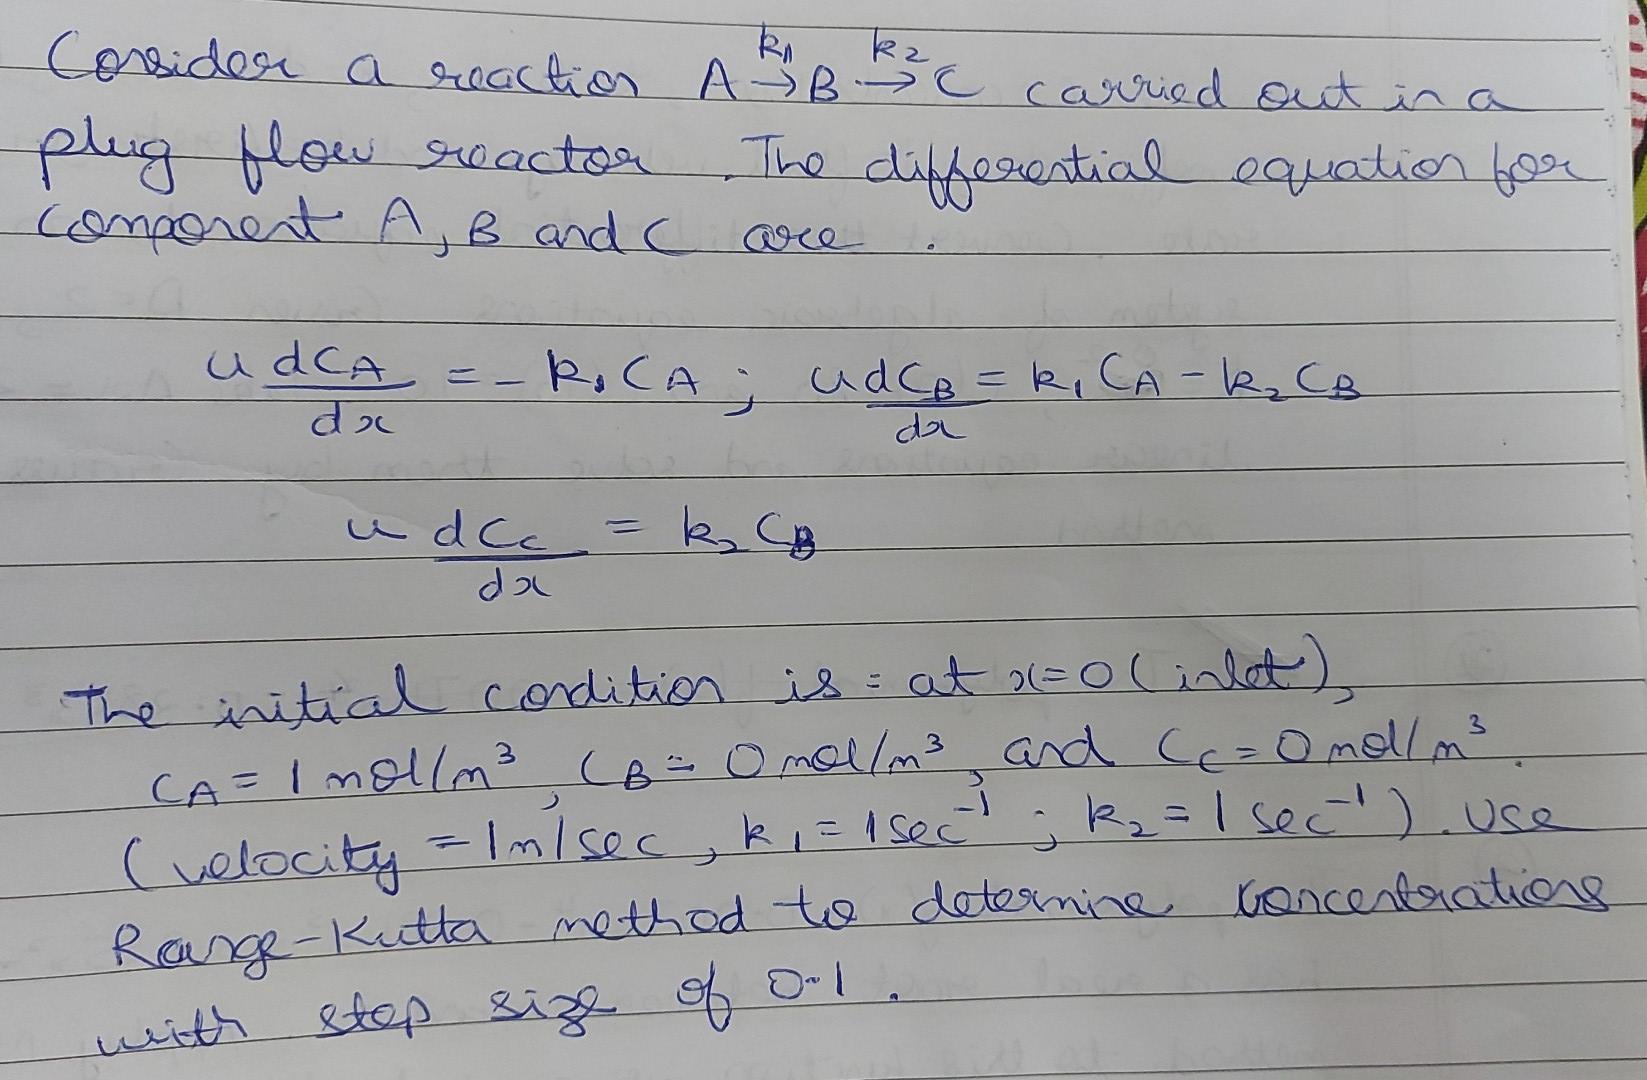 Consider a reaction A →k1 B →k2 C carried out in a
plug flow reactor. The differential equation for
component A, B and C are.
u dCA/dx = - k1 CA ; u dCB/dx = k1 CA - k2 CB
u dCc/dx = k2 CB
The initial condition is = at x=0 (inlet),
CA = 1 mol/m³, CB = 0 mol/m³, and Cc = 0 mol/m³.
(velocity = 1m/sec, k1 = 1sec⁻¹ ; k2 = 1 sec⁻¹). Use
Range-Kutta method to determine concentrations
with step size of 0.1.